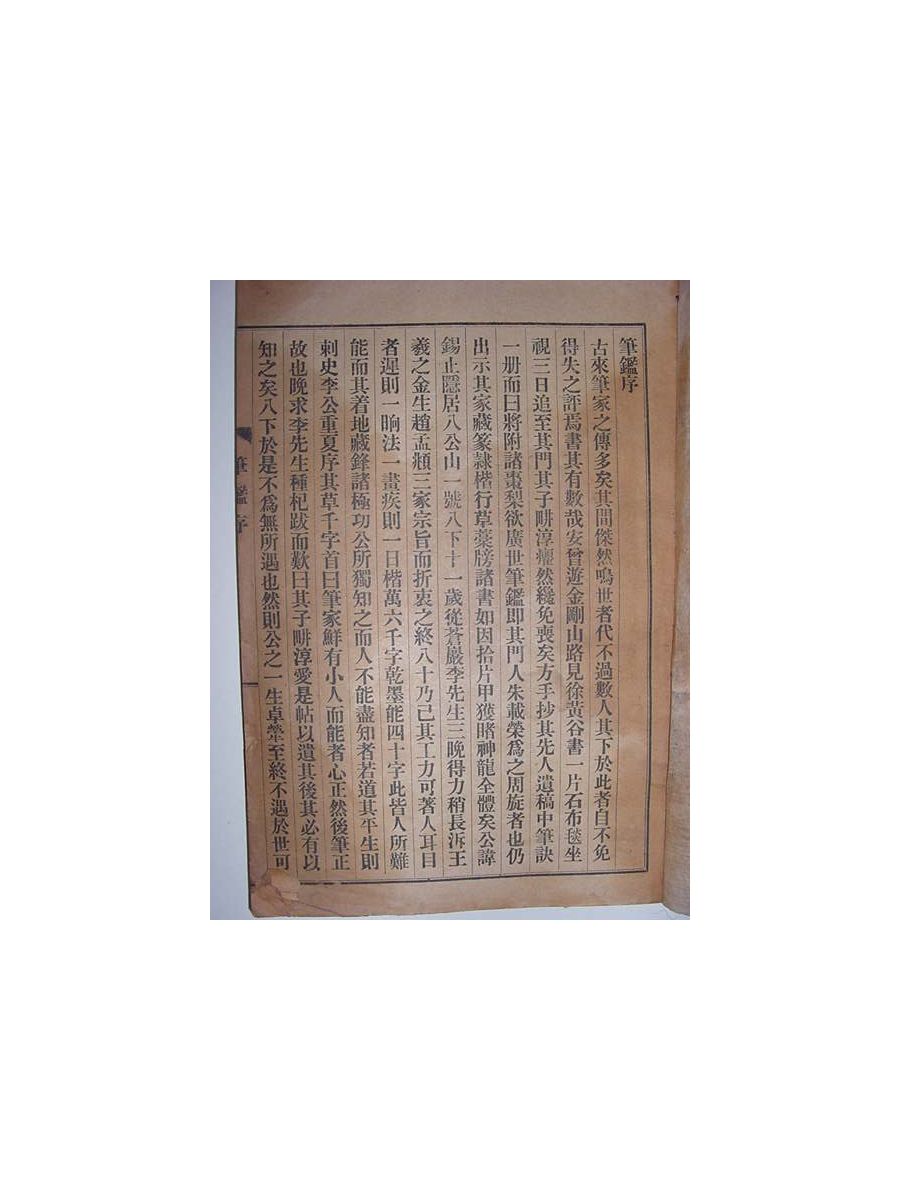 筆鑑序
古來筆家之傳多矣其間傑然鳴世者代不過數人其下於此者自不免
得失之評焉書其有數哉安曾遊金剛山路見徐黃谷書一片石布毯坐
視三日追至其門其子畊淳癯然纔免喪矣方手抄其先人遺稿中筆訣
一册而曰將附諸棗梨欲廣世筆鑑即其門人朱載榮爲之周旋者也仍
出示其家藏篆隷楷行草藁牓諸書如因拾片甲獲睹神龍全體矣公諱
錫止隱居八公山一號八下十一歲從蒼巖李先生三晚得力稍長泝王
羲之金生趙孟頫三家宗旨而折衷之終八十乃已其工力可著人耳目
者遲則一晌法一畫疾則一日楷萬六千字乾墨能四十字此皆人所難
能而其着地藏鋒諸極功公所獨知之而人不能盡知者若道其平生則
刺史李公重夏序其草千字首曰筆家鮮有小人而能者心正然後筆正
故也晚求李先生種杞跋而歎曰其子畊淳愛是帖以遺其後其必有以
知之矣八下於是不爲無所遇也然則公之一生卓犖至終不遇於世可
筆鑑序